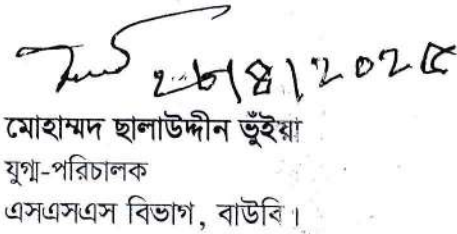 ২৮/৪/২০২৫
মোহাম্মদ ছালাউদ্দীন ভুঁইয়া
যুগ্ম-পরিচালক
এসএসএস বিভাগ, বাউবি।